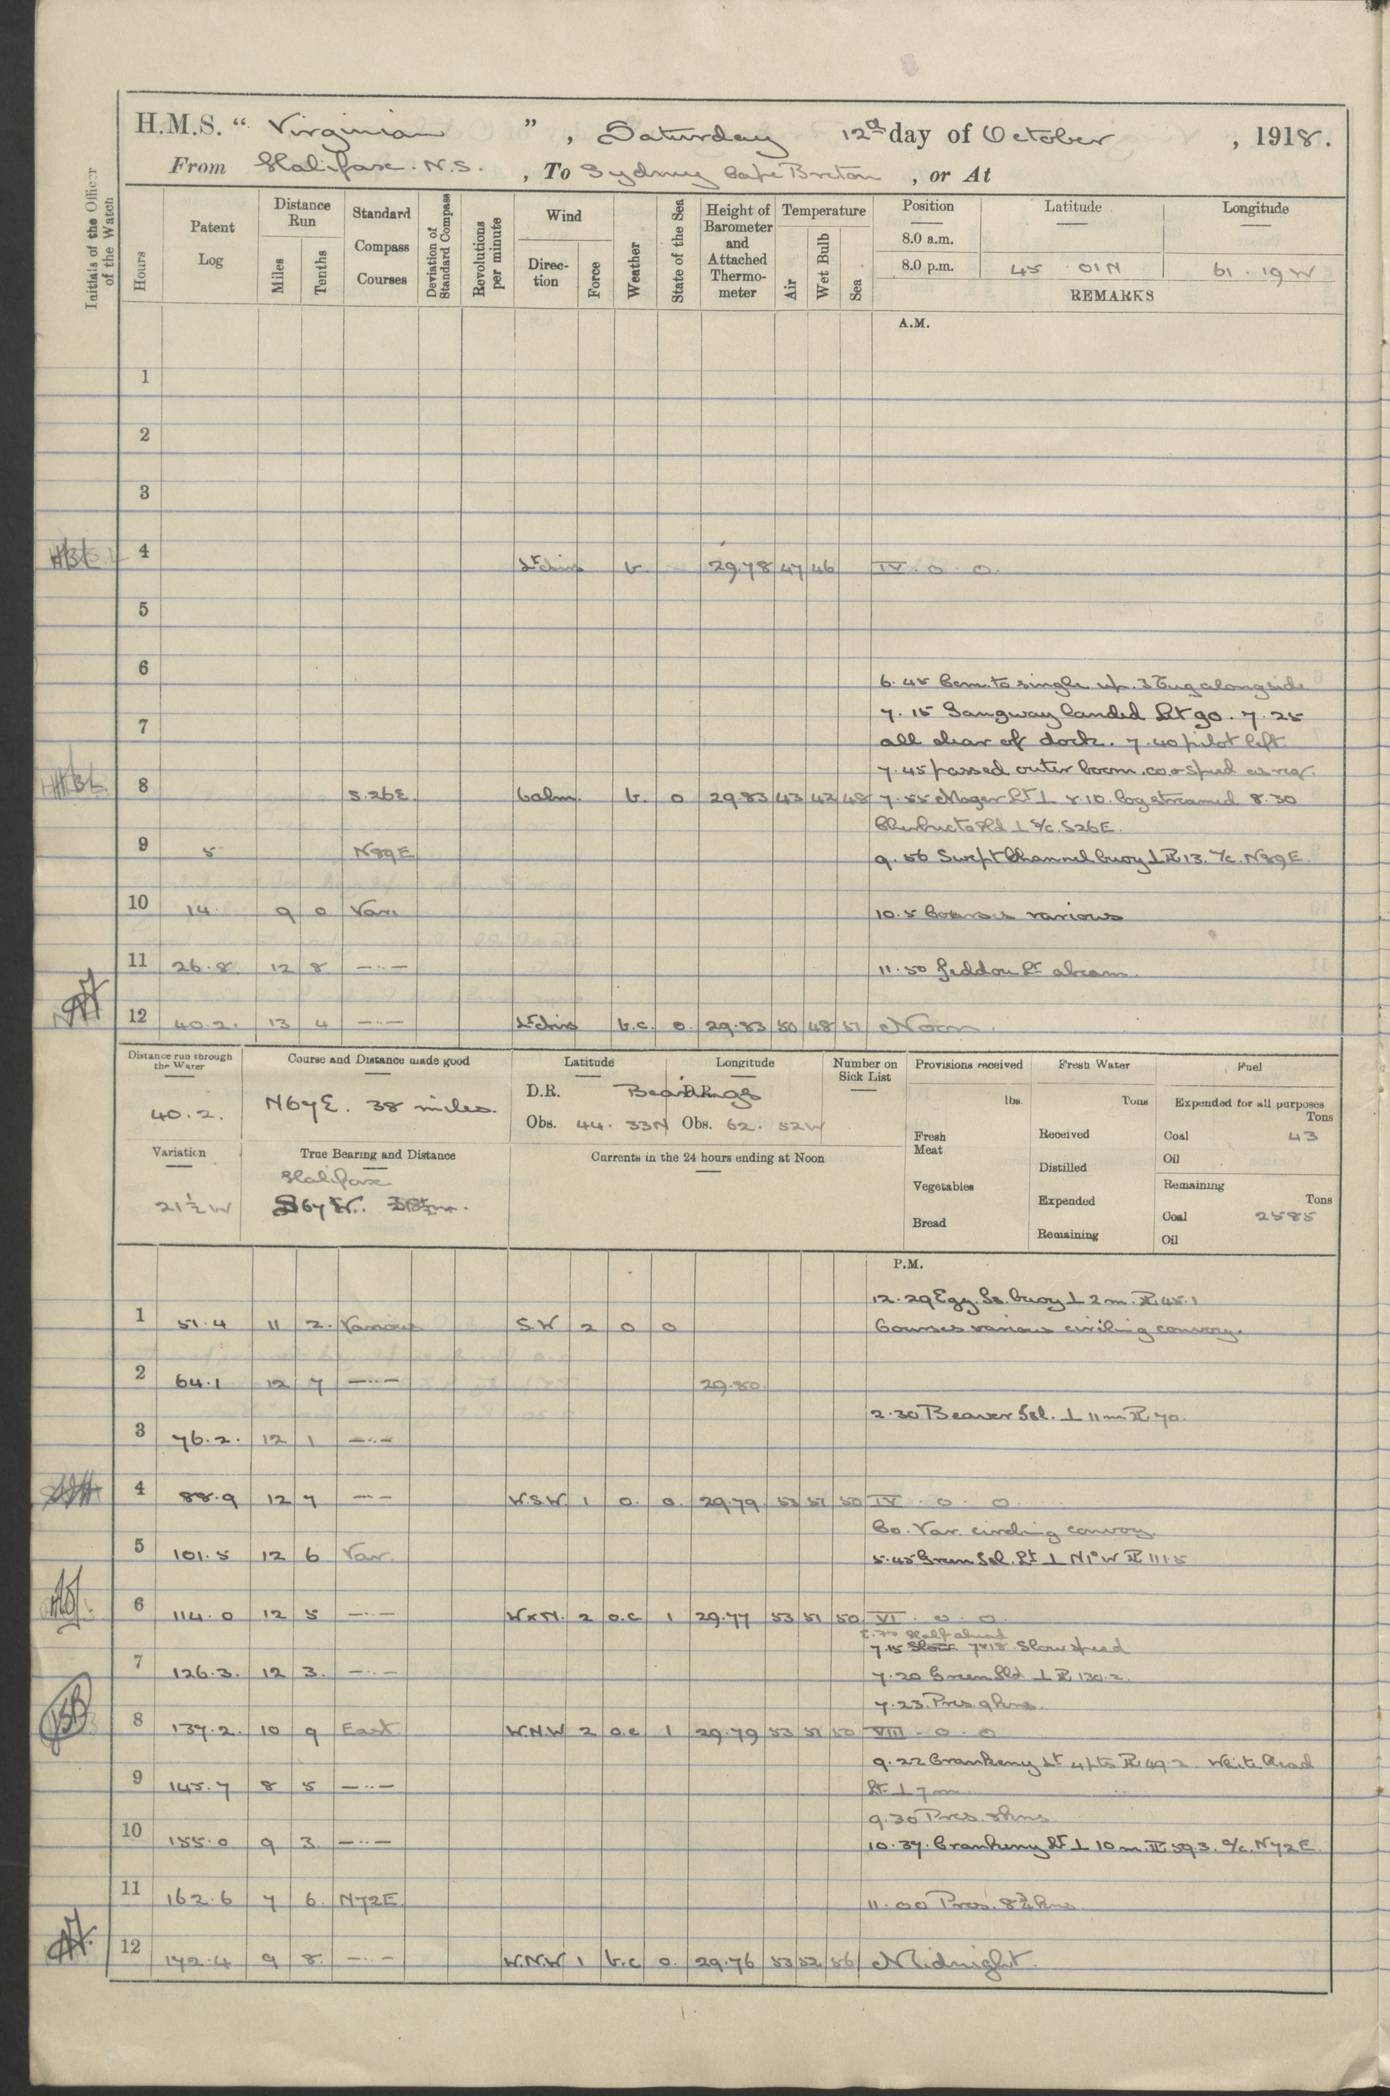 H.M.S. “ Virginian ” , Saturday 12th day of October , 1918.
From Halifax. N.S. , To Sydney Cape Breton , or At
Initials of the Officer of the Watch
Hours
Patent Log
Distance Run
Miles
Tenths
Standard Compass Courses
Deviation of Standard Compass
Revolutions per minute
Wind
Direction
Force
Weather
State of the Sea
Height of Barometer and Attached Thermometer
Temperature
Air
Wet Bulb
Sea
Position
Latitude
Longitude
8.0 a.m.
8.0 p.m. 45 01N 61 . 19 W
REMARKS
A.M.
1
2
3
4 Lt airs b. 29.78 47 46 IV . 0 . 0.
5
6
6.45 Com. to single up. 3 Tug alongside
7.15 Gangway landed Let go. 7.25
7
all clear of dock. 7.40 pilot left
7.45 passed outer boom. co & speed as req.
8 S.26E. Calm. b. 0 29.83 43 42 48 7.55 Mager Lt ⊥ 8.10. log streamed 8.30
Chebucto Hd ⊥ S/c. S26E.
9 5 N89E 9.56 Swept Channel buoy ⊥ PL 13. A/c. N89E.
10 14. 9 0 Var. 10.5 Courses various
11 26.8. 12 8 — · — 11.50 Jeddou Lt abeam.
12 40.2. 13 4 — · — Lt airs b.c. 0. 29.83 50 48 51 Noon.
Distance run through the Water
40.2.
Course and Distance made good
N67E. 38 miles.
Latitude
Longitude
D.R. Bearings D.R.
Obs. 44. 33N Obs. 62. 52W
Number on Sick List
Provisions received
lbs.
Fresh Meat
Vegetables
Bread
Fresh Water
Tons
Received
Distilled
Expended
Remaining
Fuel
Expended for all purposes
Tons
Coal 43
Oil
Remaining
Tons
Coal 2585
Oil
Variation
21½ W
True Bearing and Distance
Halifax
S67W. 38 m.
Currents in the 24 hours ending at Noon
P.M.
12.29 Egg. Is. buoy ⊥ 2 m. PL 45.1
1 51.4 11 2. Various S.W 2 0 0 Courses various circling convoy.
2 64.1 12 7 — · — 29.80.
2.30 Beaver Isl. ⊥ 11m PL 70.
3 76.2. 12 1 — · —
4 88.9 12 7 — — W.S.W 1 0. 0. 29.79 53 51 50 IV 0 0
Co. Var. circling convoy.
5 101.5 12 6 Var. 5.45 Green Isl. Lt ⊥ N1°W PL 111.5
6 114.0 12 5 — · — WxN. 2 o.c 1 29.77 53 51 50 VI . 0 . 0.
Half ahead
7.15 Slow 7.18 Slow speed
7 126.3. 12 3. — · — 7.20 Green Isld ⊥ PL 130.2.
7.23. Pres. 9 kns.
8 137.2. 10 9 East. W.N.W 2 o.c 1 29.79 53 51 50 VIII . 0 . 0
9.22 Crankeny Lt 4 pts PL 49.2 White Head
9 145.7 8 5 — · — Lt ⊥ 7m
9.30 Pres. 8 kns
10 155.0 9 3. — · — 10.37. Crankeny Lt ⊥ 10m. PL 59.3. A/c. N72E.
11 162.6 7 6. N72E 11.00 Pres. 8¾ kns.
12 172.4 9 8. — · — W.N.W 1 b.c 0. 29.76 53 52 56 Midnight.